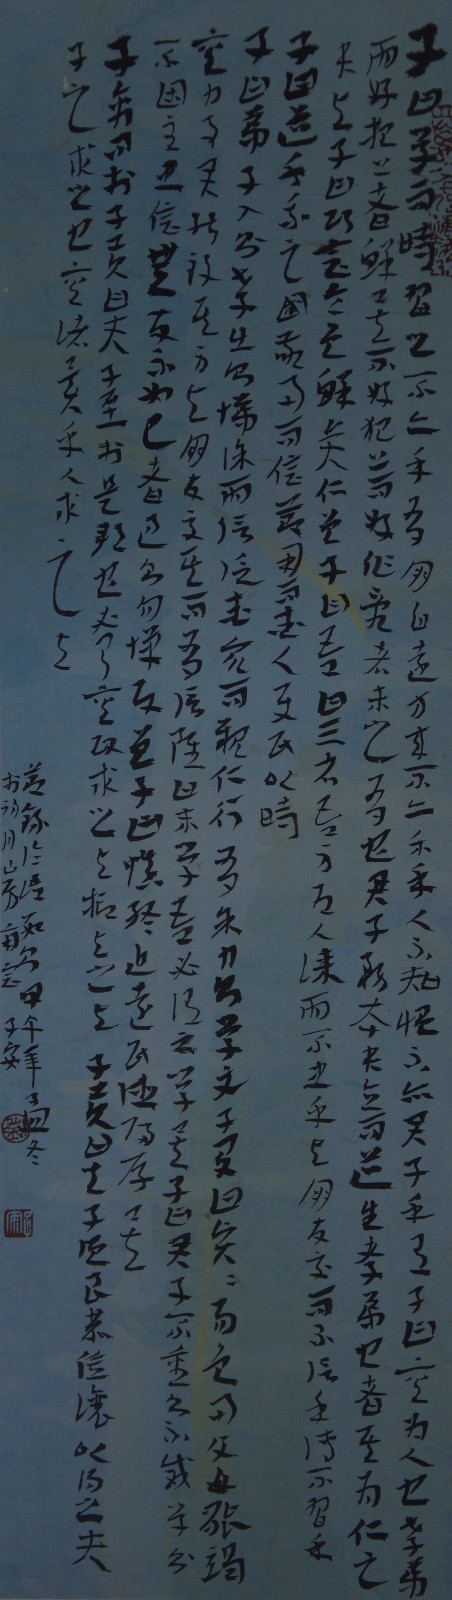 子曰學而時習之不亦乎有朋自遠方來不亦樂乎人不知慍不亦君子乎有子曰其為人也孝弟
而好犯上者鮮矣不好犯上而好作亂者未之有也君子務本本立而道生孝弟也者其為仁之
本與子曰巧言令色鮮矣仁曾子曰吾日三省吾身為人謀而不忠乎與朋友交而不信乎傳不習乎
子曰道千乘之國敬事而信節用而愛人使民以時
子曰弟子入則孝出則悌謹而信汎愛眾而親仁行有餘力則學文子夏曰賢賢易色事父母能竭
其力事君能致其身與朋友交言而有信雖曰未學吾必謂之學矣子曰君子不重則不威學則
不固主忠信無友不如己者過則勿憚改曾子曰慎終追遠民德歸厚矣
子禽問於子貢曰夫子至於是邦也必聞其政求之與抑與之與子貢曰夫子溫良恭儉讓以得之夫
子之求之也其諸異乎人求之與
節錄論語甲午年孟冬
於月山房子安